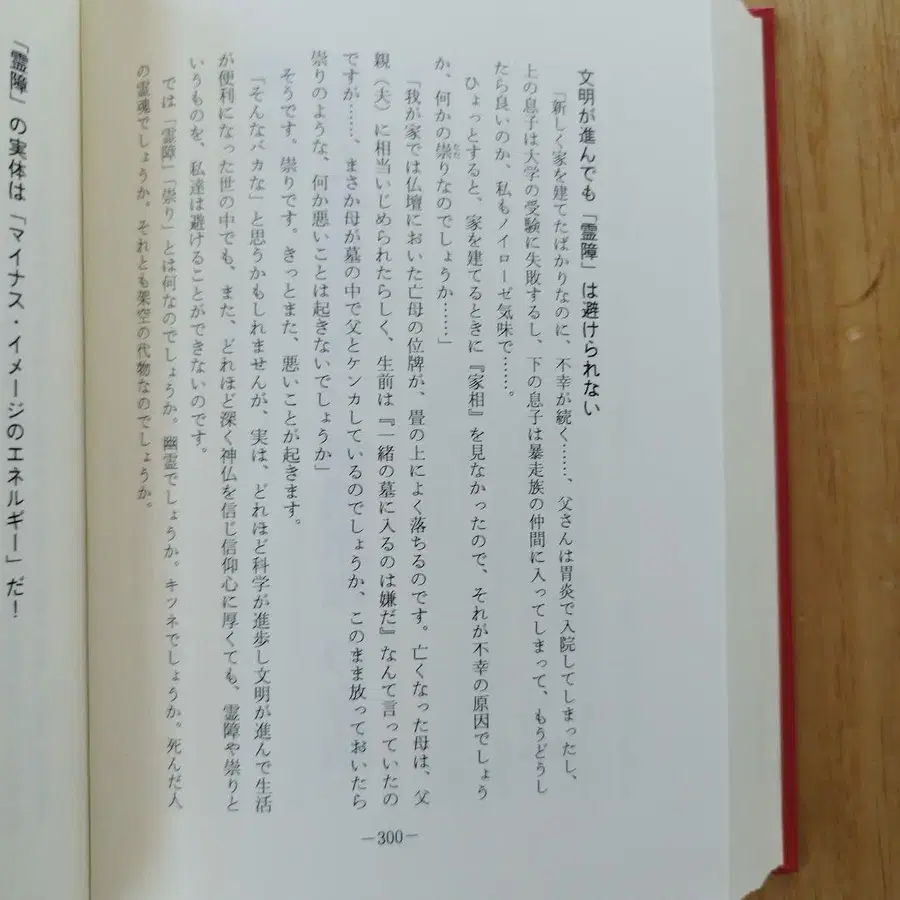 文明が進んでも「霊障」は避けられない
「新しく家を建てたばかりなのに、不幸が続く……、父さんは胃炎で入院してしまったし、
上の息子は大学の受験に失敗するし、下の息子は暴走族の仲間に入ってしまって、もうどうし
たら良いのか、私もノイローゼ気味で……。
ひょっとすると、家を建てるときに『家相』を見なかったので、それが不幸の原因でしょう
か、何かの祟りなのでしょうか……」
「我が家では仏壇においた亡母の位牌が、畳の上によく落ちるのです。亡くなった母は、父
親（夫）に相当いじめられたらしく、生前は『一緒の墓に入るのは嫌だ』なんて言っていたの
ですが……、まさか母が墓の中で父とケンカしているのでしょうか、このまま放っておいたら
祟りのような、何か悪いことは起きないでしょうか」
そうです。祟りです。きっとまた、悪いことが起きます。
「そんなバカな」と思うかもしれませんが、実は、どれほど科学が進歩し文明が進んで生活
が便利になった世の中でも、また、どれほど深く神仏を信じ信仰心に厚くても、霊障や祟りと
いうものを、私達は避けることができないのです。
では「霊障」「祟り」とは何なのでしょうか。幽霊でしょうか。キツネでしょうか。死んだ人
の霊魂でしょうか。それとも架空の代物なのでしょうか。
―300―
「霊障」の実体は「マイナス・イメージのエネルギー」だ！